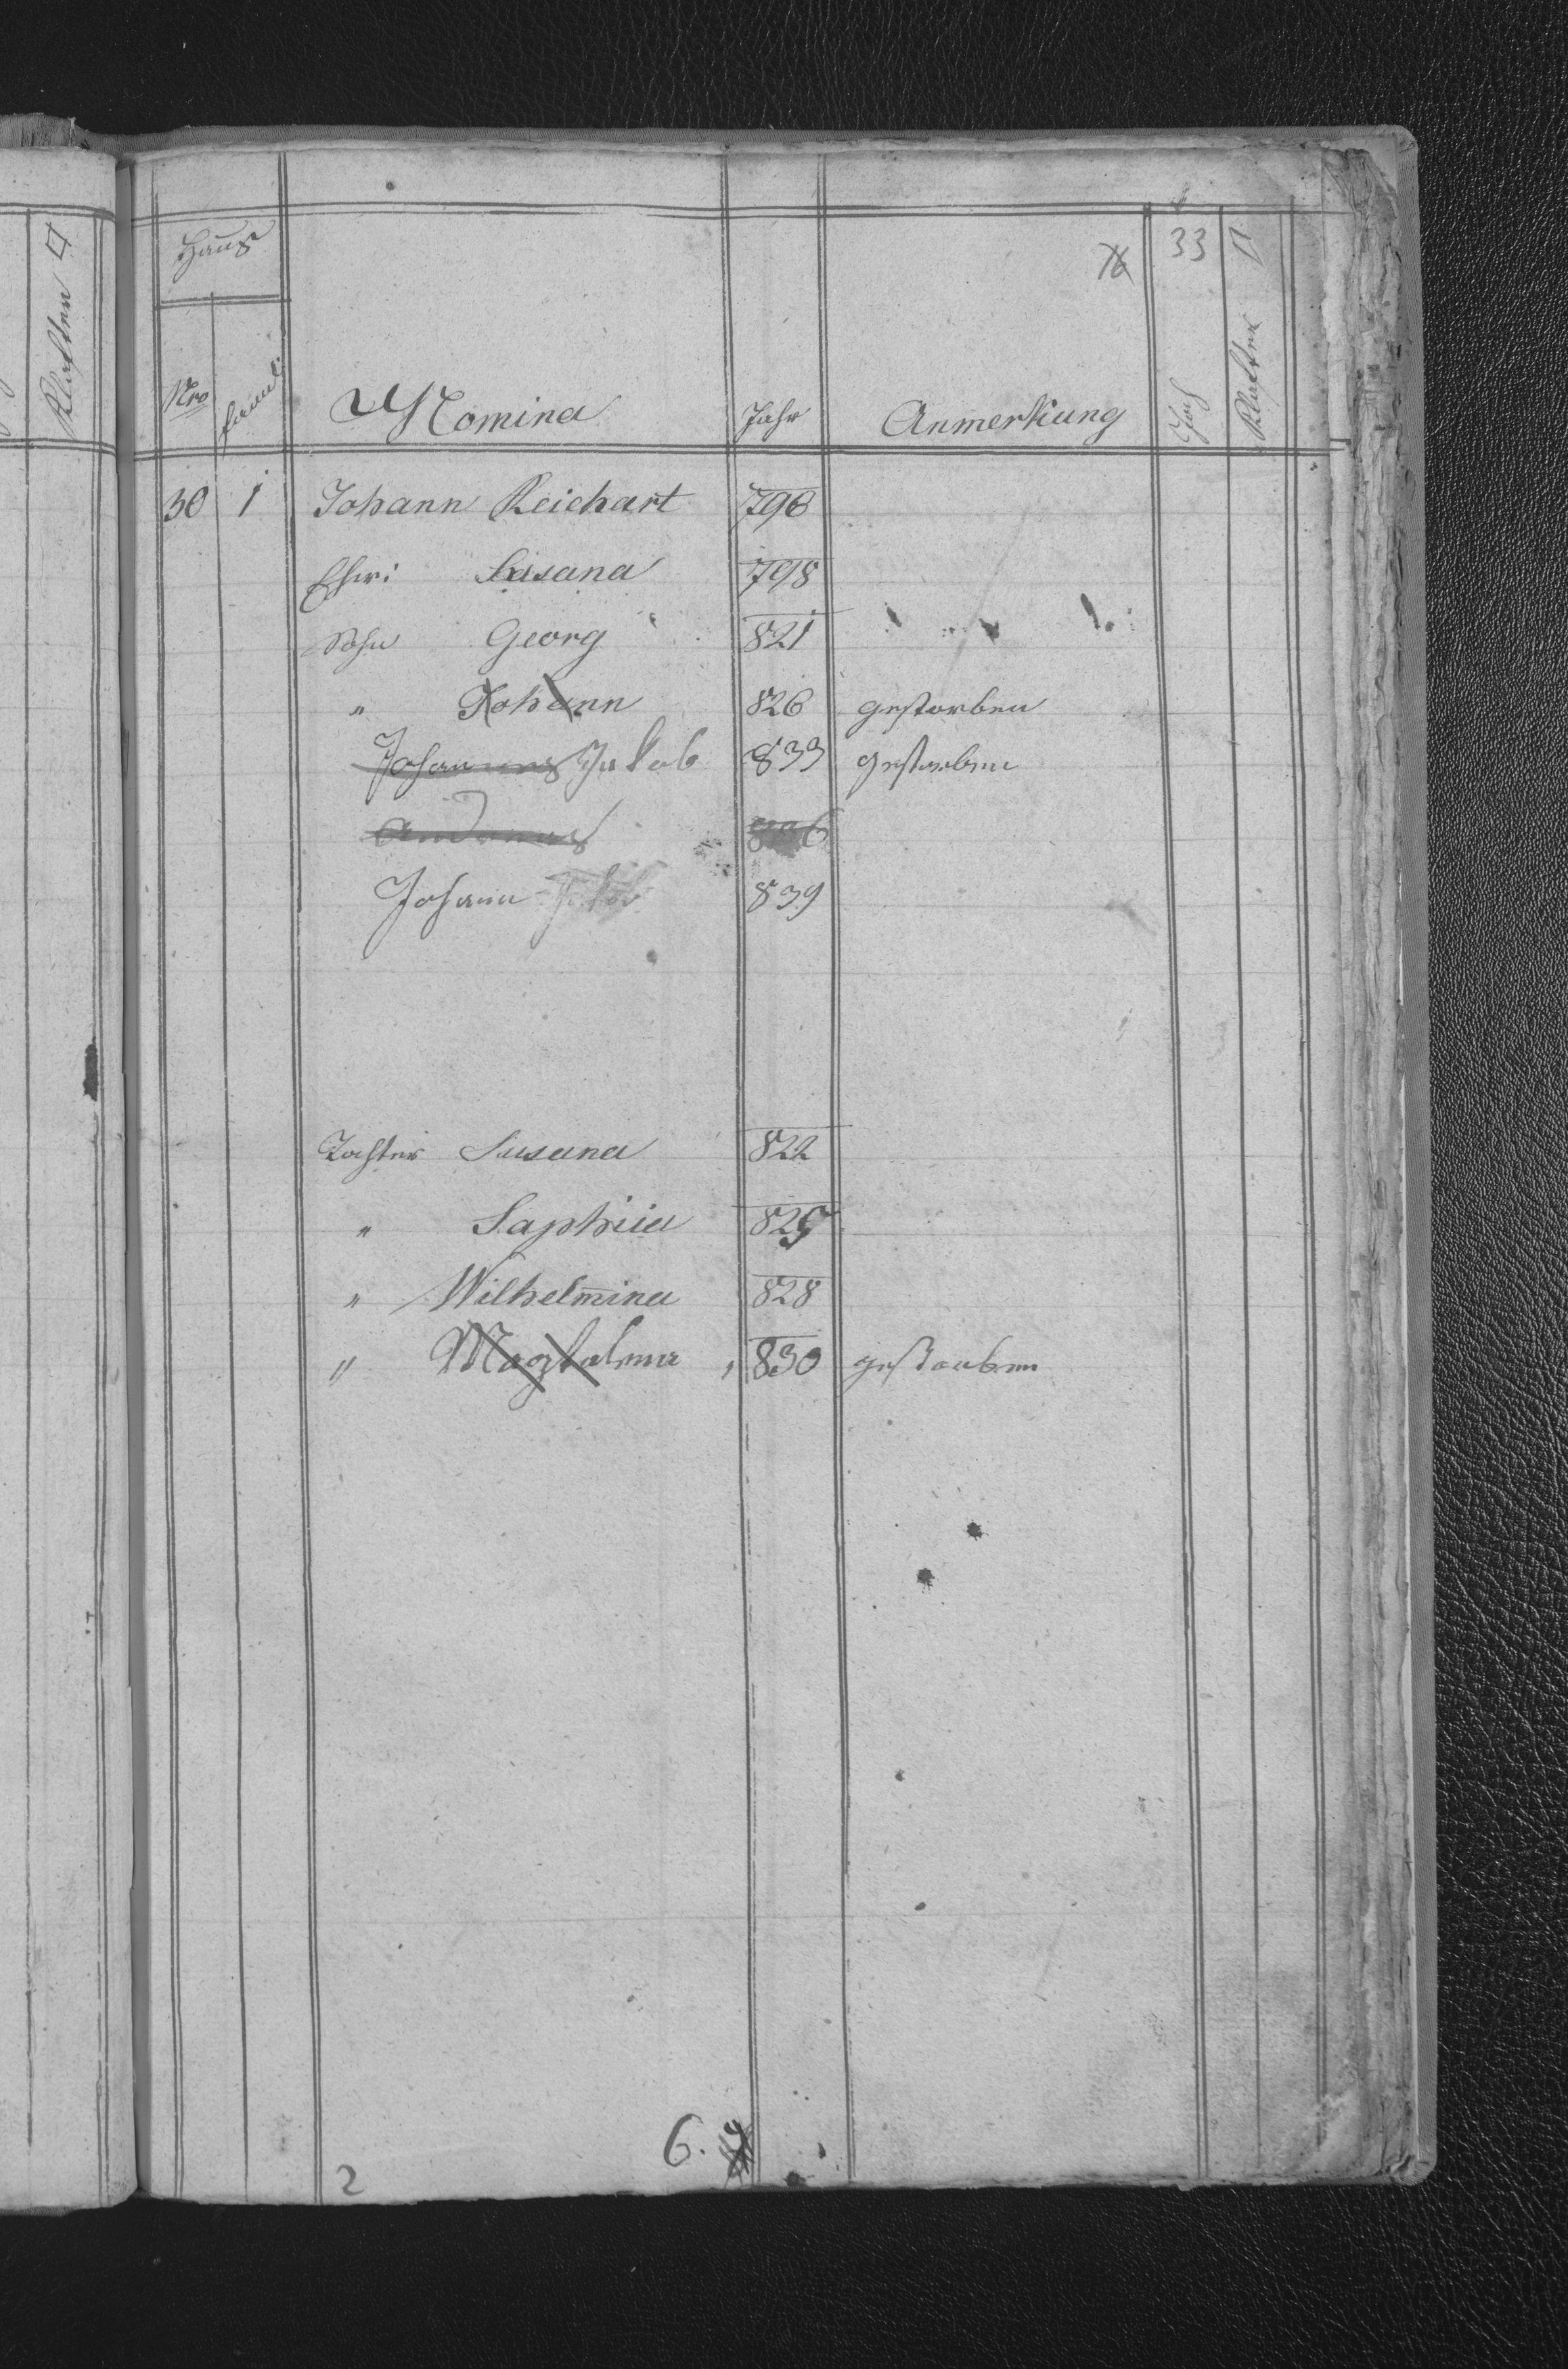 Klafter □
Haus
76 33 □
Nro famil: Nomina Jahr Anmerkung Joch Klafter
30 1 Johann Reichart 796
Ehwi: Susana 798
Sohn Georg 821
" Johann 826 gestorben
Johannes Jakob 833 gestorben
Johann 839
Tochter Susana 822
" Saphiia 825
" Wilhelmina 828
" Magdalena 830 gestorben
6.
2